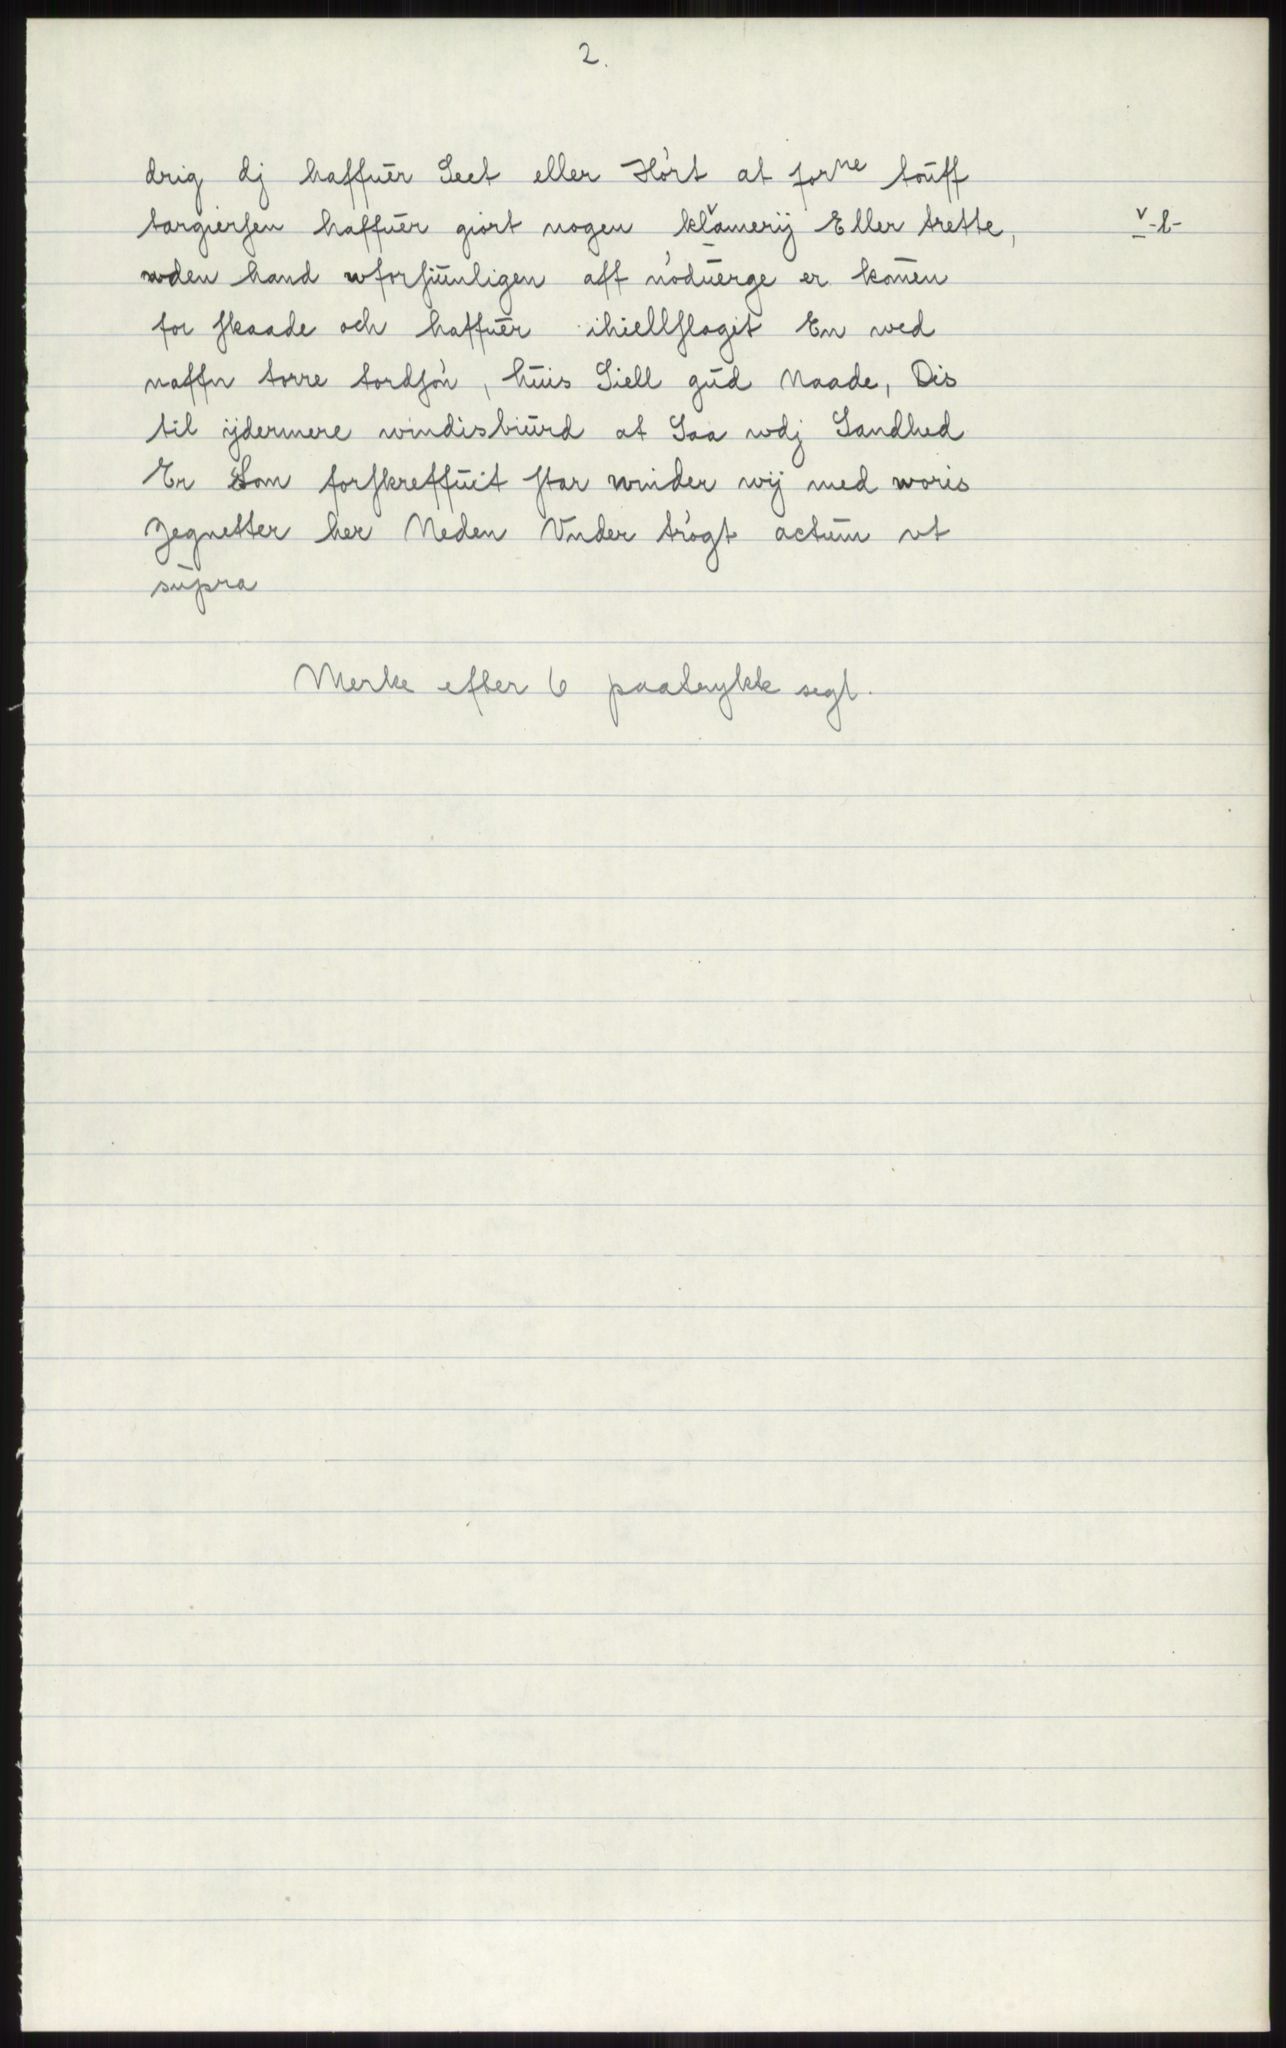 2.
drig dj haffuer Seet eller Hört at forne toüff
targiersen haffüer giort nogen klamerij Eller trette, v -l-
wden hand wforsiünligen aff nödüerge er komen
for skaade och haffüer ihiellslagit En wed
naffn torre tordsön, hüis Siell güd Naade, Dis
til ijdermere windisbiürd at Saa wdj Sandhed
Er Som forskreffüit star winder wij med woris
Zegnetter her Neden Vnder trögt actüm vt
süpra
Merke efter 6 paatrykte segl.